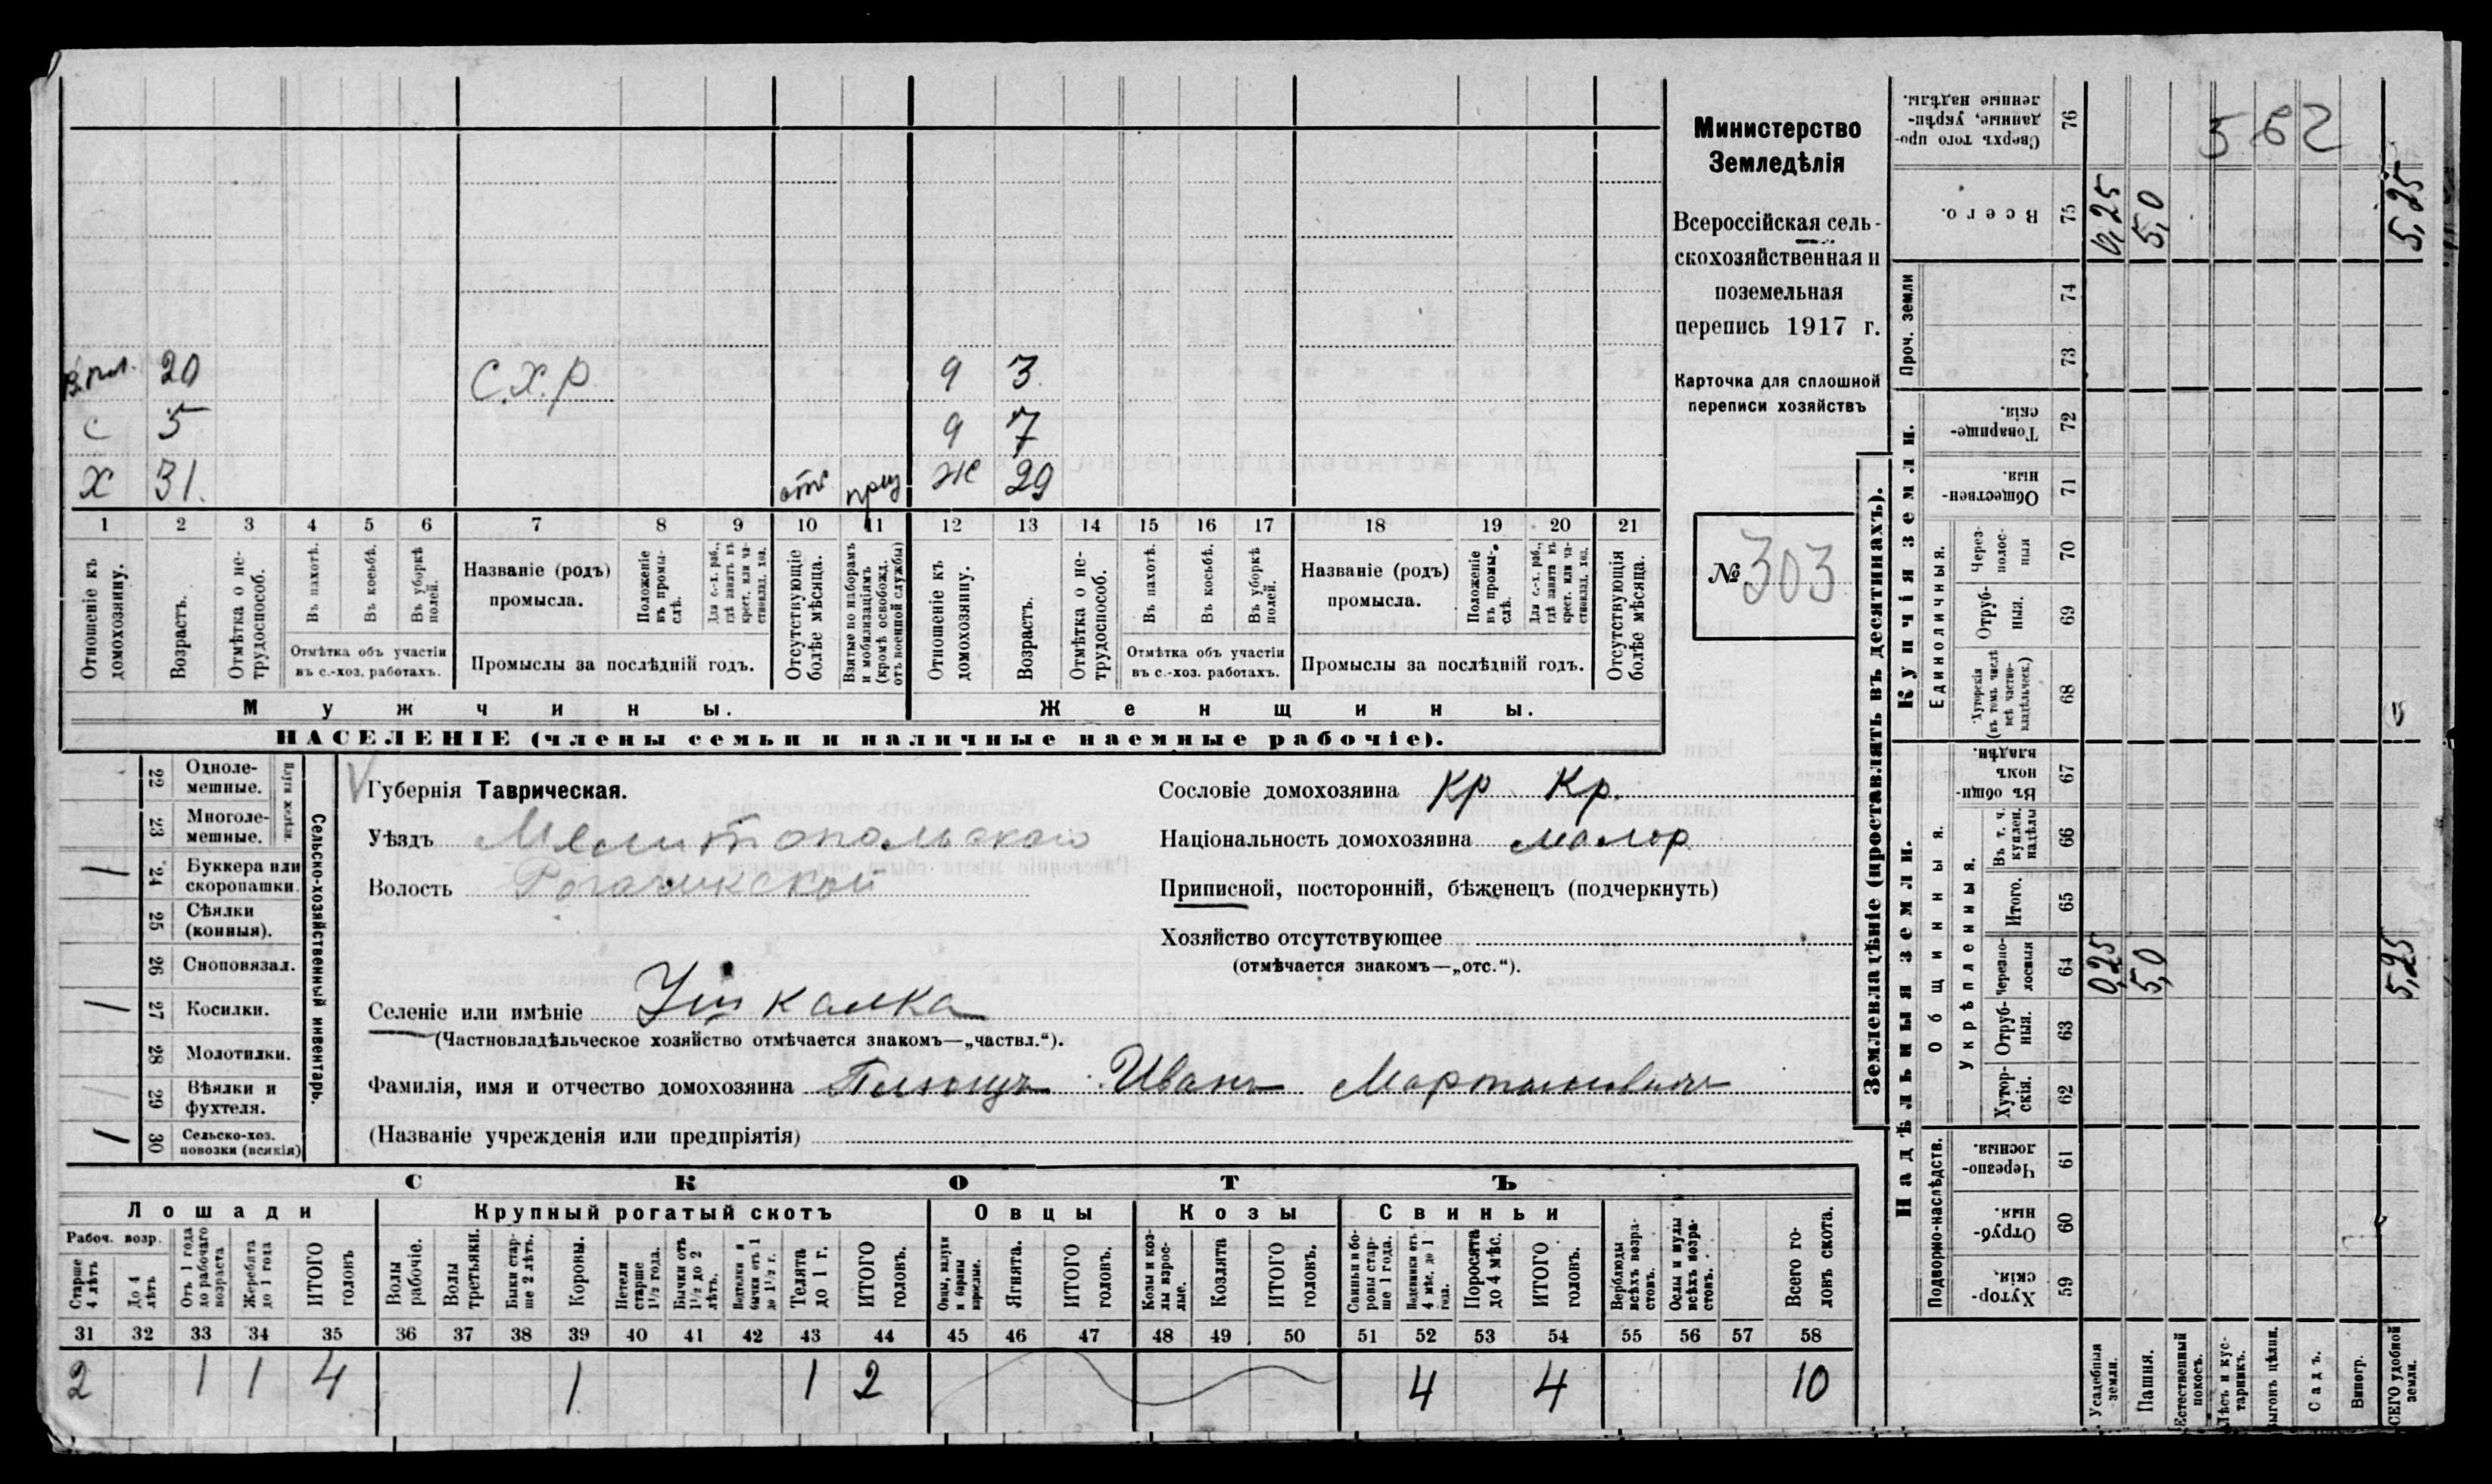 Министерство
Земледѣлія
Всероссійская сель-
скохозяйственная и
поземельная
перепись 1917 г.
Карточка для сплошной
переписи хозяйствъ
№ 303
20 С.Х.Р. 9 3
с 5 9 7
х 31. отс Ж 29
1 2 3 4 5 6 7 8 9 10 11 12 13 14 15 16 17 18 19 20 21
Отношеніе къ домохозяину.
Возрастъ.
Отмѣтка о не-трудоспособ.
Въ пахотѣ.
Въ косьбѣ.
Въ уборкѣ полей.
Отмѣтка объ участіи
въ с.-хоз. работахъ.
Названіе (родъ)
промысла.
Положеніе въ промы-слѣ.
Для с.-х. раб., гдѣ занятъ въ крест. или ча-стновлад. хоз.
Промыслы за послѣдній годъ.
Отсутствующіе болѣе мѣсяца.
Взятые по наборамъ и мобилизаціямъ (кромѣ освобожд. отъ военной службы)
Отношеніе къ домохозяину.
Возрастъ.
Отмѣтка о не-трудоспособ.
Въ пахотѣ.
Въ косьбѣ.
Въ уборкѣ полей.
Отмѣтка объ участіи
въ с.-хоз. работахъ.
Названіе (родъ)
промысла.
Положеніе въ промы-слѣ.
Для с.-х. раб., гдѣ занята въ крест. или ча-стновлад. хоз.
Промыслы за послѣдній годъ.
Отсутствующія болѣе мѣсяца.
Мужчины. Женщины.
НАСЕЛЕНІЕ (члены семьи и наличные наемные рабочіе).
Сельско-хозяйственный инвентарь.
22 Одноле-мешные.
23 Многоле-мешные.
1 24 Буккера или скоропашки.
25 Сѣялки (конныя).
26 Сноповязал.
1 27 Косилки.
28 Молотилки.
1 29 Вѣялки и фухтеля.
1 30 Сельско-хоз. повозки (всякія)
Губернія Таврическая.
Уѣздъ Мелитопольскаго
Волость Рогачикской
Селеніе или имѣніе Ушкалка
(Частновладѣльческое хозяйство отмѣчается знакомъ—„частвл.“).
Фамилія, имя и отчество домохозяина Иванъ Мартыновичъ
(Названіе учрежденія или предпріятія)
Сословіе домохозяина Кр Кр.
Національность домохозяина малор
Приписной, посторонній, бѣженецъ (подчеркнуть)
Хозяйство отсутствующее
(отмѣчается знакомъ—„отс.“).
СКОТЪ
Лошади Крупный рогатый скотъ Овцы Козы Свиньи
Рабоч. возр.
Старше 4 лѣтъ
До 4 лѣтъ
Отъ 1 года до рабочаго возраста
Жеребята до 1 года
ИТОГО головъ
Волы рабочіе.
Волы третьяки.
Быки стар-ше 2 лѣтъ.
Коровы.
Нетели старше 1½ года.
Бычки отъ 1½ до 2 лѣтъ.
Подтелки и бычки отъ 1 до 1½ г.
Телята до 1 г.
ИТОГО головъ.
Овцы, валухи и бараны взрослые.
Ягнята.
ИТОГО головъ.
Козы и коз-лы взрос-лые.
Козлята
ИТОГО головъ.
Свиньи и бо-ровы стар-ше 1 года.
Подсвинки отъ 4 мѣс. до 1 года.
Поросята до 4 мѣс.
ИТОГО головъ.
Верблюды всѣхъ возра-стовъ.
Ослы и мулы всѣхъ возра-стовъ.
Всего го-ловъ скота.
31 32 33 34 35 36 37 38 39 40 41 42 43 44 45 46 47 48 49 50 51 52 53 54 55 56 57 58
2 1 1 4 1 1 2 4 4 10
Землевладѣніе (проставлять въ десятинахъ).
Сверхъ того про-данные, укрѣп-ленные надѣлы. 76
Всего. 75 0,25 5,0 5,25
Проч. земли 74 73
Купчія земли.
Товарище-скія. 72
Обществен-ныя. 71
Единоличныя.
Через-полос-ныя 70
Отруб-ныя. 69
Хуторскія (въ томъ числѣ всѣ частно-владѣльческ.) 68
Надѣльныя земли.
Общинныя.
Въ общи-номъ владѣн. 67
Укрѣпленныя.
Въ т. ч. куплен. надѣлы 66
Итого. 65
Черезпо-лосныя 64 0,25 5,0 5,25
Отруб-ныя. 63
Хутор-скія. 62
Подворно-наслѣдств.
Черезпо-лосныя. 61
Отруб-ныя. 60
Хутор-скія. 59
Усадебныя земли.
Пашня.
Естественный покосъ.
Лѣсъ и кус-тарникъ.
Выгонъ цѣлин.
Садъ.
Виногр.
ВСЕГО удобной земли.